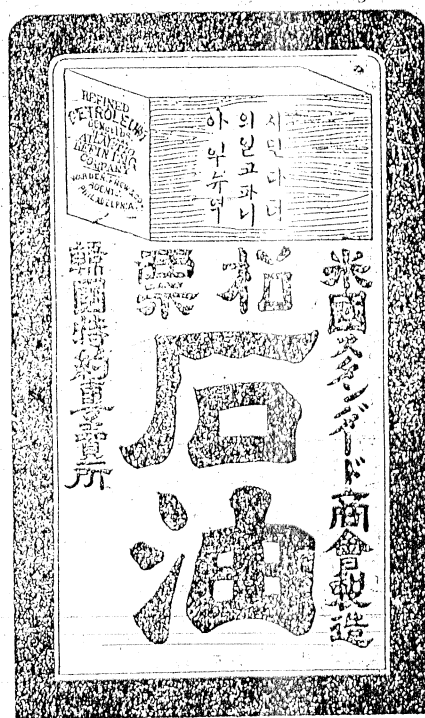 REFINED
PETROLEUM
ATLANTIC
REFINING
COMPANY
PHILADELPHIA
의일고파니
米國スタンダード商會製造
石油
韓國特約專賣所